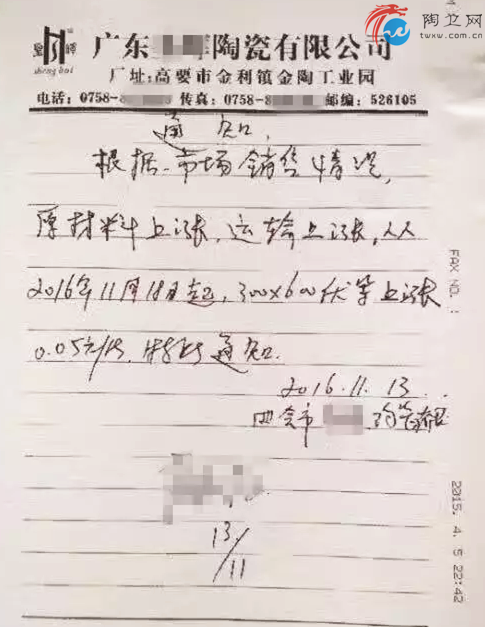 陶卫网
www.twxw.com.cn
sheng hui
广东 陶瓷有限公司
厂址:高要市金利镇金陶工业园
电话:0758-8 传真:0758-8 邮编:526105
通知
根据市场销售情况,
原材料上涨,运输上涨,从
2016年11月18日起,300x600 上涨
0.05元/片, 通知.
2016.11.13
四会市
13/11
FAX NO. :
2015. 4. 5 22:42